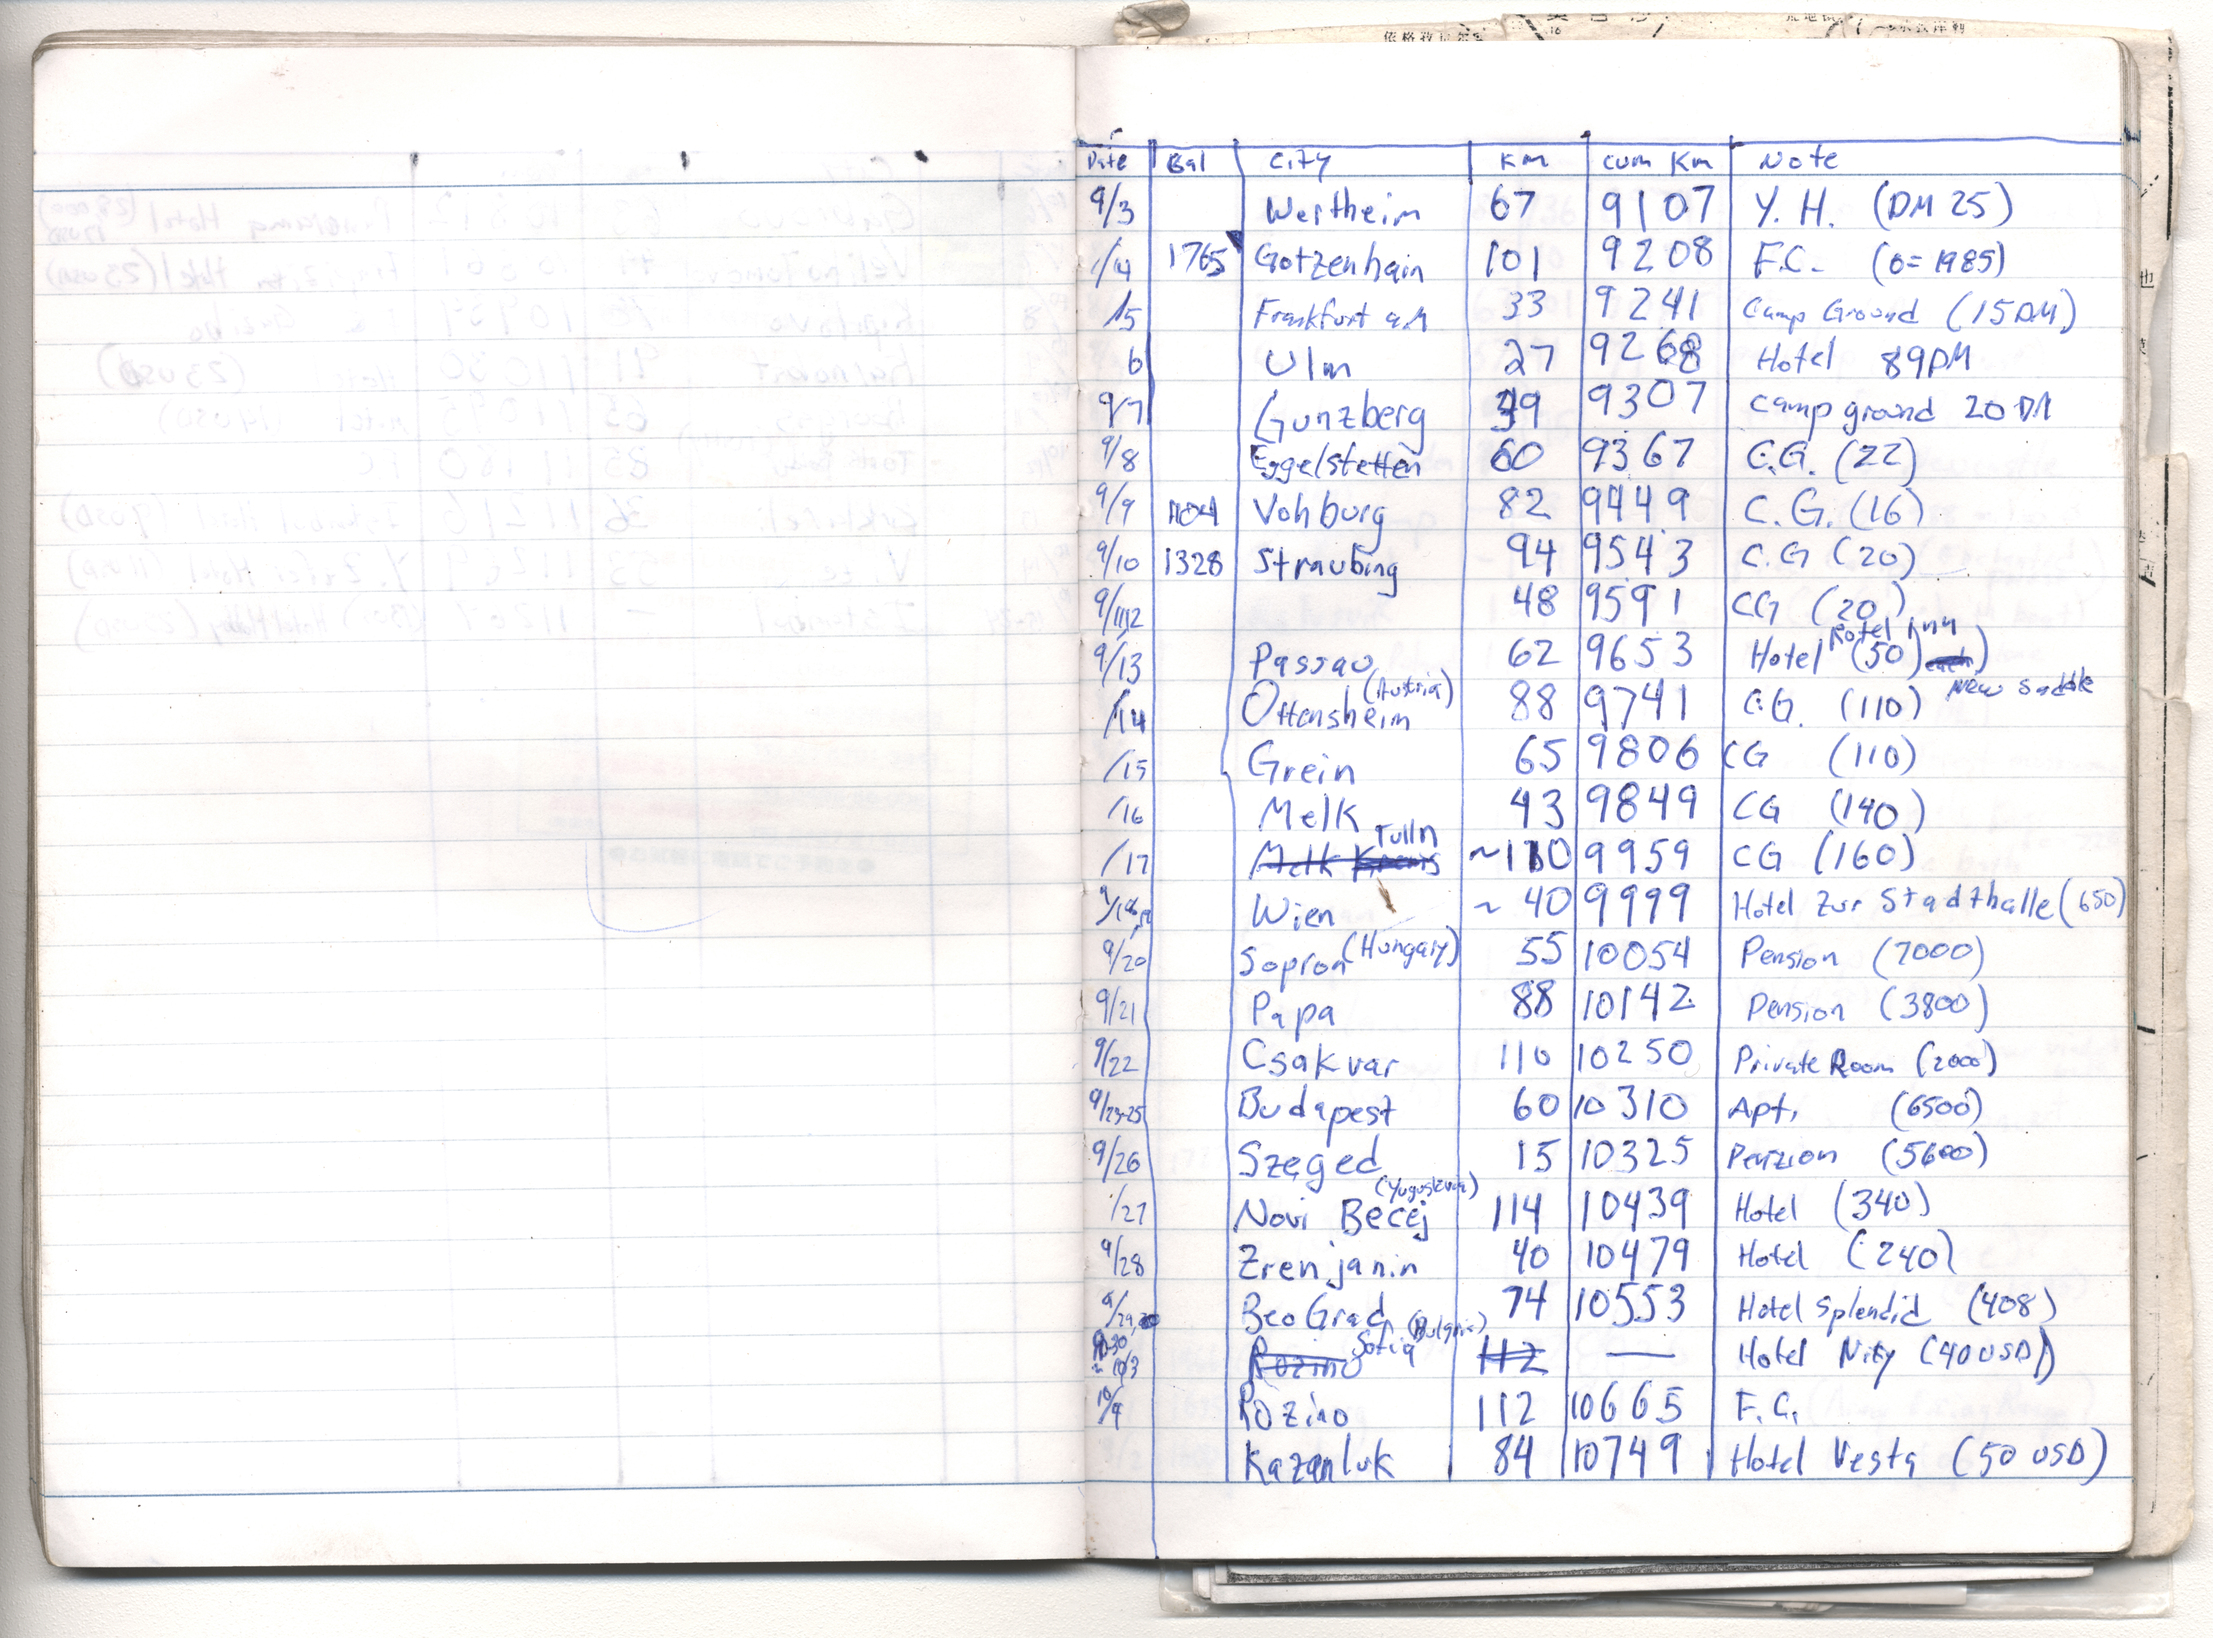 Date Bal City KM cum Km Note
9/3 Wertheim 67 9107 Y. H. (DM 25)
/4 1765 Gotzenhain 101 9208 F.C. (0=1985)
/5 Frankfurt a.M 33 9241 Camp Ground (15 DM)
6 Ulm 27 9268 Hotel 89DM
9/7 Gunzberg 39 9307 camp ground 20 DM
9/8 Eggelstetten 60 9367 C.G. (22)
9/9 1104 Vohburg 82 9449 C.G. (16)
9/10 1328 Straubing 94 9543 C.G (20)
9/11,12 48 9591 CG (20)
9/13 Passau 62 9653 Hotel Rotel Inn (50)
/14 Ottensheim (Austria) 88 9741 C.G. (110) New Saddle
/15 Grein 65 9806 CG (110)
/16 Melk 43 9849 CG (140)
/17 Melk Krems Tulln ~110 9959 CG (160)
9/18,19 Wien ~ 40 9999 Hotel Zur Stadthalle (650)
9/20 Sopron (Hungary) 55 10054 Pension (7000)
9/21 Papa 88 10142 Pension (3800)
9/22 Csakvar 110 10250 Private Room (2000)
9/23-25 Budapest 60 10310 Apt. (6500)
9/26 Szeged 15 10325 Penzion (5600)
/27 Novi Becej (Yugoslavia) 114 10439 Hotel (340)
9/28 Zrenjanin 40 10479 Hotel (240)
9/29,30 BeoGrad 74 10553 Hotel Splendid (408)
9-30 ~ 10/3 Rozino Sofia (Bulgaria) 112 — Hotel Niky (40 USD)
10/4 Rozino 112 10665 F.C.
Kazanluk 84 10749 Hotel Vesta (50 USD)